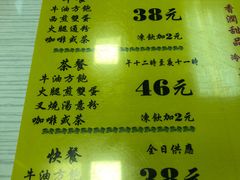 38元
牛油方飽
西煎雙蛋
火腿通粉
咖啡或茶
凍飲加2元
茶餐
午十二時至晨十一時
牛油方飽
西煎雙蛋
叉燒湯意粉
咖啡或茶
46元
凍飲加2元
快餐
全日供應
牛油方飽
38元
香潤
甜品